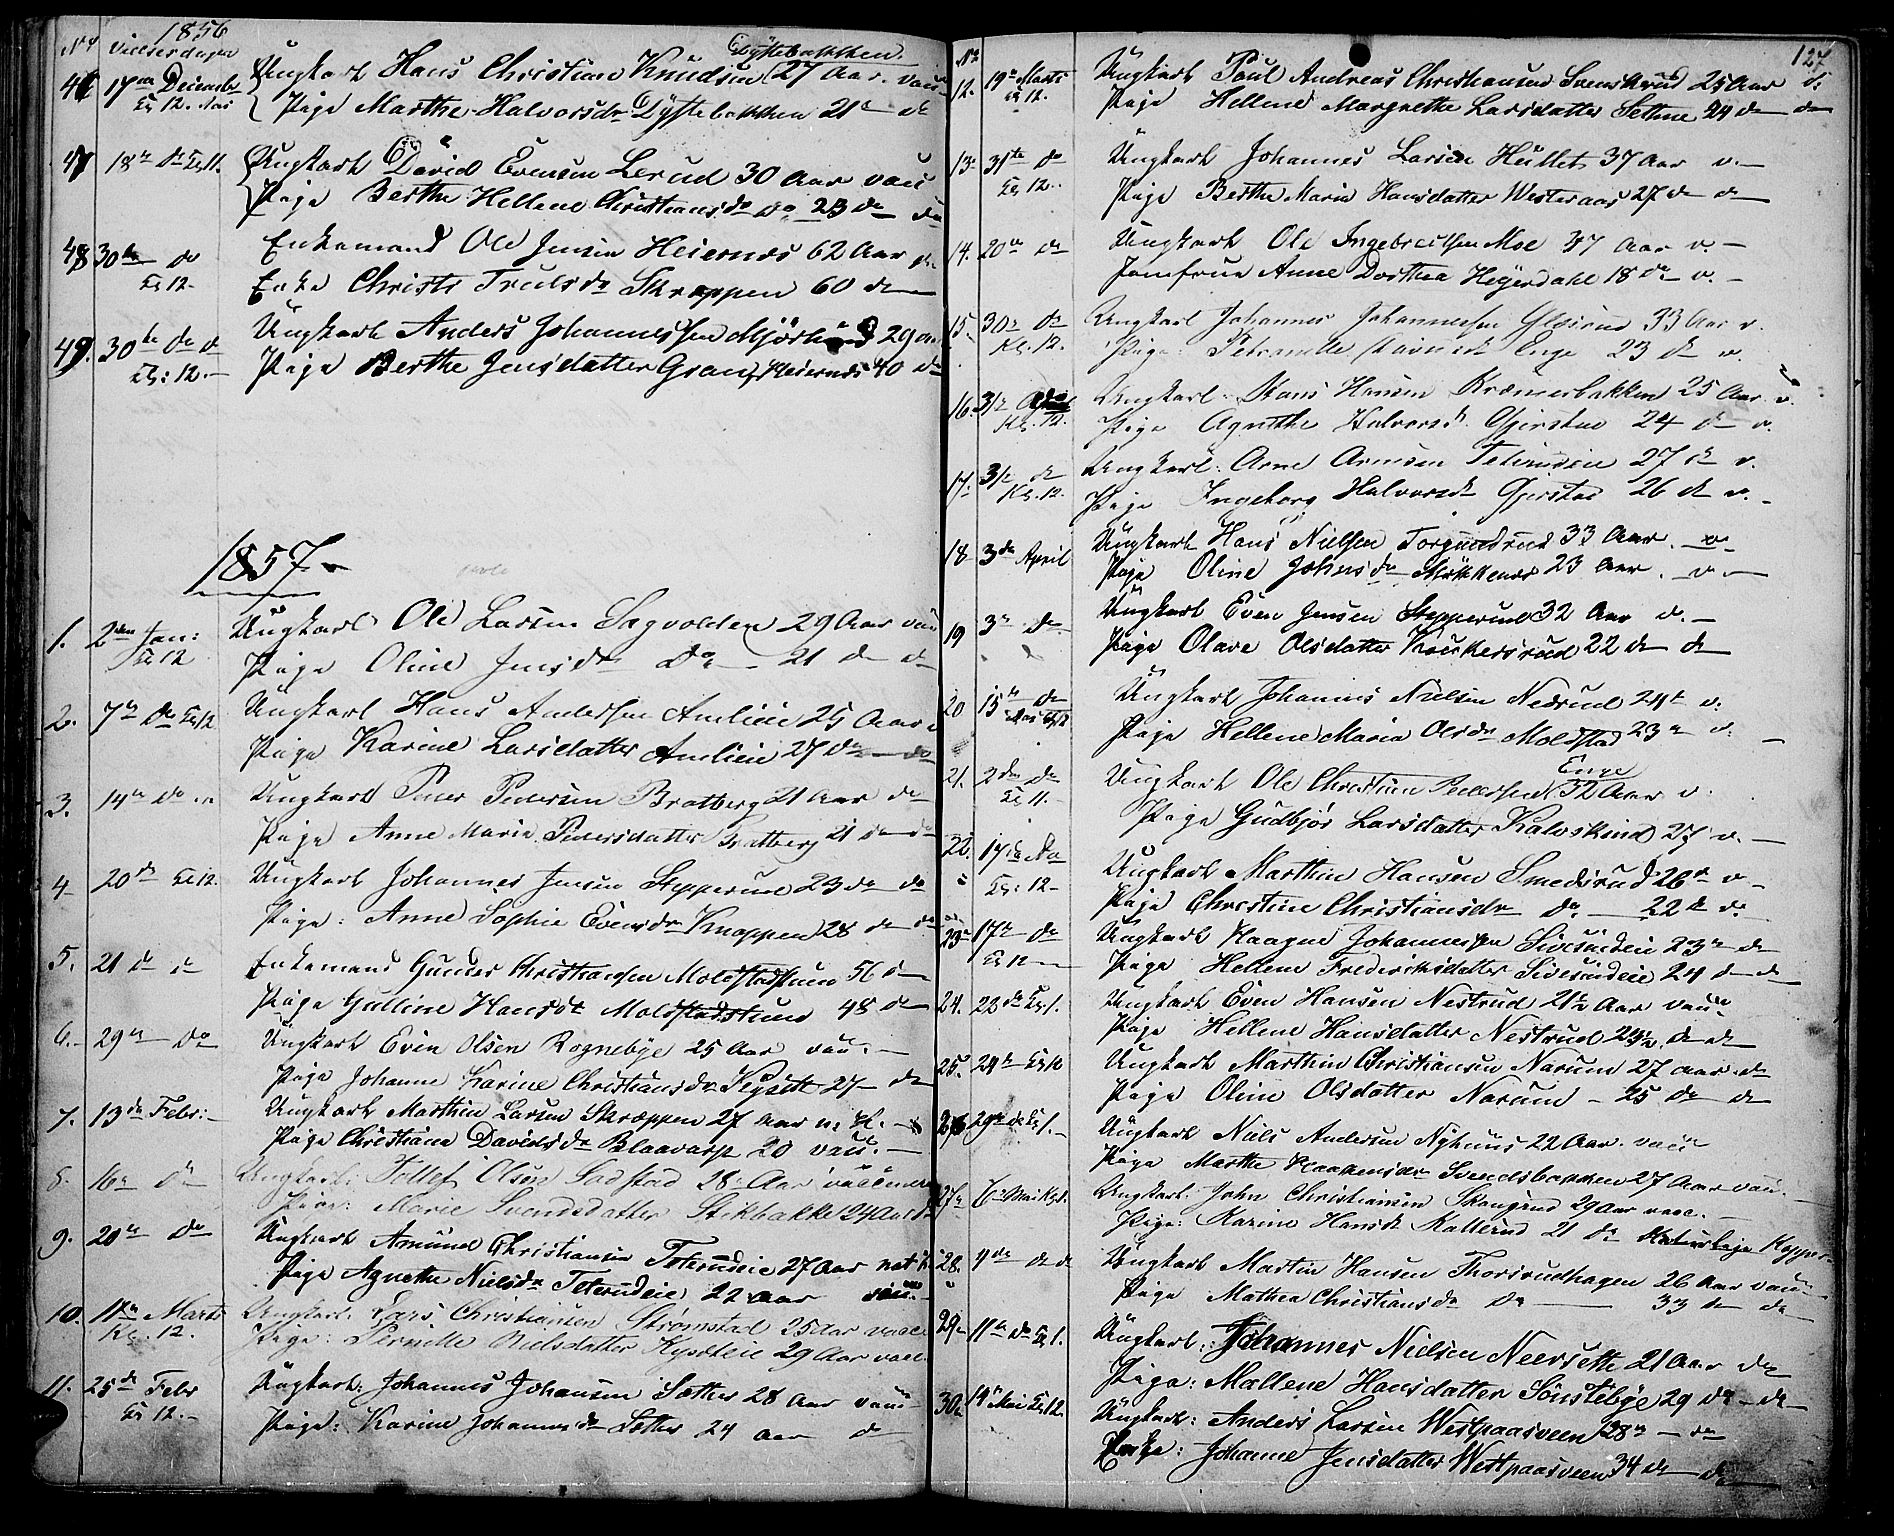 1856
No Vielsesdagen
Dÿstebakken.
46 17de Decembr Ungkarl Hans Christian Knudsen 27 Aar. vacc
Kl 12. Pige Marthe Halvorsdr Dÿstebakken 21 d d
47 18de do Kl 11. Ungkarl David Evensen Lerud 30 Aar vacc
Pige Berthe Hellene Christiansdr do 23 do do
48 30te do Enkemand Ole Jensen Heiernes 62 Aar
Kl 12. Enke Christi Trulsdr Skreppen 60 d
49. 30te do do Ungkarl Anders Johannessen Mjørlund 29 Aar
Kl: 12. Pige Berthe Jensdatter Gran, Heiernes 40 do
1857.
1. 2den Jan: Ungkarl Ole Larsen Sagvolden 29 Aar vacc
Kl 12 Pige Oline Jensdr do 21 d d
2. 7de do Kl 12 Ungkarl Hans Andersen Amlien 25 Aar
Pige Karine Larsdatter Amlien 27 do do
3. 14de do Ungkarl Peder Pedersen Bratberg 21 Aar do
Pige Anne Marie Pedersdatter Bratberg 21 do do
4 20de Kl 12. Ungkarl Johannes Jensen Stepperud 23 do do
Pige: Anne Sophie Evensdr Knappen 28 do do
5. 21 d d Enkemand Gunder Christiansen Molstadstuen 56 d
Pige Gulline Hansdt Molstadstuen 48 d
6. 29de do Ungkarl Even Olsen Rognebÿe 25 Aar vacc.
Pige Johanne Karine Christiansdr Kÿsett 27 do
7. 13de Febr: Ungkarl Marthin Larsen Skreppen 27 Aar n: K.
Pige Christiane Davidsdr Blaavarp 20 vacc.
8. 16de do Ungkarl: Tollef Olsen Gadstad 28 Aar vaccineret
Pige: Marie Svendsdatter Stikbakke 24 Aar do
9. 20de do Ungkarl Amund Christiansen Teterudeie 27 Aar nat K
Pige Agnethe Nielsdr Teterudeie 22 Aar vacc.
10. 11te Marts Ungkarl. Lars Christiansen Strømstad 25 Aar vacc
Kl. 12. Pige: Pernille Nielsdatter Kyseteie 29 Aar vacc.
11. 25de Febr Ungkarl: Johannes Johansen Sæther 28 Aar vacc
Kl 12. Pige: Karine Johannesdr Sether 24 Aar d
127
No
12. 19de Marts Ungkarl Poul Andreas Christiansen Svenskerud 25 Aar v:
Kl 12. Pige Hellene Margrethe Larsdatter Settne 24 d d
13. 31te do Ungkarl Johannes Larsen Hullet 37 Aar v.
Kl 12. Pige Berthe Marie Hansdatter Westeraas 27 d d
14. 20de do Ungkarl Ole Ingebretsen Moe 37 Aar v.
Jomfrue Anne Dorthea Heÿerdahl 18 do v.
15. 30te do Ungkarl Johannes Johannesen Glæserud 33 Aar v.
Kl. 12. Pige: Petronelle Enge 23 d v.
16. 3/4 April Ungkarl. Hans Hansen Kræmerbakken 25 Aar v.
Kl. 12. Pige Agnethe Halvorsd. Gjerstad 24 d v.
17. 3/4 do Ungkarl. Arne Arnesen Teterudeie 27 d v.
Kl. 12. Pige Ingeborg Halvorsdt Gjerstad 26 d v.
18 3de April Ungkarl Hans Nielsen Torgunrud 33 Aar. v.
Pige Oline Johnsdr Mÿkkenes 23 Aar. v.
19 3de do Ungkarl Even Jensen Stepperud 32 Aar v.
Pige Olave Olsdatter Kaukersrud 22 d d
20 15de do Ungkarl Johannes Nielsen Nedrud 24 v.
Pige Hellene Maria Olsdr Molstad 23 v.
Enge
21. 2den do Ungkarl Ole Christian Pedersen 32 Aar v.
Kl 11. Pige Gudbjør Larsdatter Kalvskind 27 v.
22. 17de do Ungkarl Marthin Hansen Smedsrud 26 v
Kl: 12 Pige Christine Christiansdr do 22 d do
23 17de do Ungkarl Haagen Johannessen Sivesindeie 23 d
Kl 12 Pige Hellene Frederiksdatter Sivesindeie 24 d d
24. 23de Kl 1. Ungkarl Even Hansen Nestrud 21½ Aar vacc
Pige Hellene Hansdatter Nestrud 23½ d d
25. 24de Kl 10 Ungkarl Marthin Christiansen Narum 27 Aar do
Pige Oline Olsdatter Narum 25 do d
26 29de do Kl 1. Ungkarl Niels Andersen Nÿhuus 22 Aar. vacc
Pige Marthe Haakensdr Svendsbakken 27 Aar vacc.
27 6te Mai Kl 1. Ungkarl. John Christiansen Skaugrud 29 Aar vacc.
Pige: Karine Hansdt Kallerud 21 do Naturlige Kopper
28. 4de do do Ungkarl Martin Hansen Thorsrudhagen 26 Aar vacc
Pige Mathea Christiansdr do 33 do do
29 11te do Kl 1. Ungkarl: Johannes Nielsen Nedrsette 21 Aar do
Pige: Mallene Hansdatter Sønstebÿe 29 do d
30 14de Mai Kl 12. Ungkarl: Anders Larsen Westpaasveen 28 do
Enke: Johanne Jensdatter Westpaasveen 34 d d